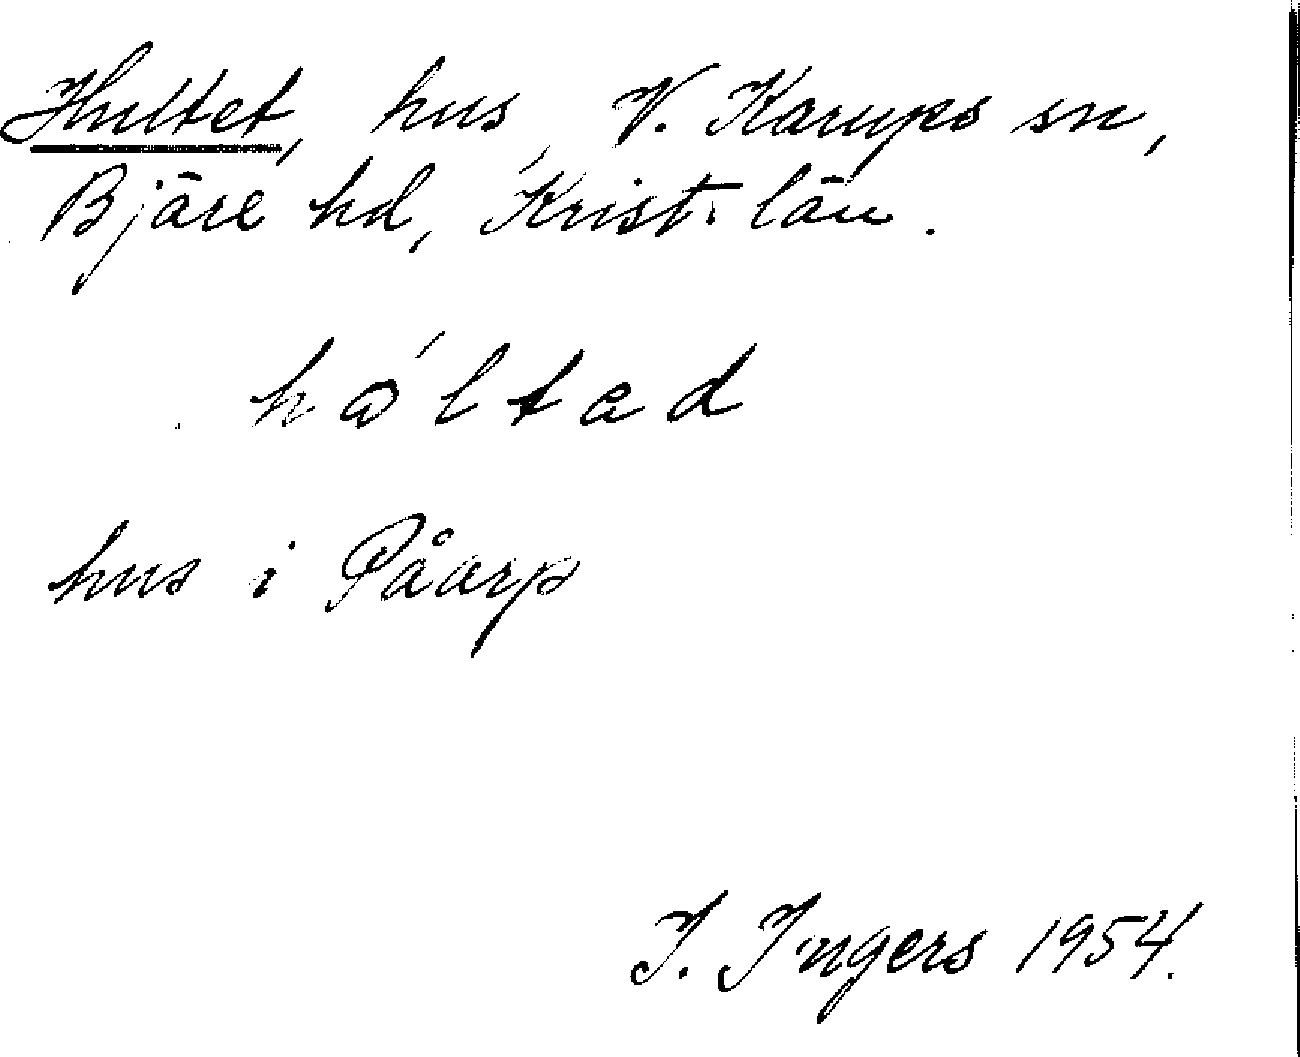 Hultet, hus, V. Karups sn,
Bjäre hd, Krist. län.
hǿltad
hus i Påarp
I. Ingers 1954.